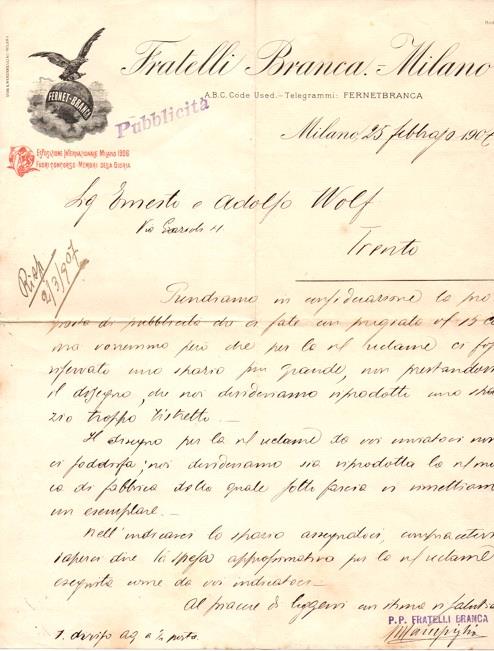 Fratelli Branca.-Milano
A.B.C. Code Used.-Telegrammi: FERNETBRANCA
FERNET-BRANCA
Pubblicità
Esposizione Internazionale Milano 1906
Fuori Concorso-Membri della Giuria
Milano, 25 febbrajo 1907
Sig Ernesto e Adolfo Wolf
Via
Trento
Risp
2/3/907
Prendiamo in considerazione la pro
posta di pubblicità che ci fate con pregiata v/ 15 co
ma vorremmo però che per la n/ reclame ci fosse
riservato uno spazio più grande, non prestandosi
il disegno, che noi desideriamo riprodotto uno spa
zio troppo ristretto.-
Il disegno per la n/ reclame da voi inviatoci non
ci soddisfa; noi desideriamo sia riprodotta la n/ mar
ca di fabbrica della quale sotto fascia vi rimettiamo
un esemplare.-
Nell'indicarci lo spazio assegnatoci,
saperci dire la spesa approssimativa per la n/ reclame
eseguita come da voi indicatoci-
Al piacere di leggervi con stima vi salutia
P.P. FRATELLI BRANCA
1. a parte.